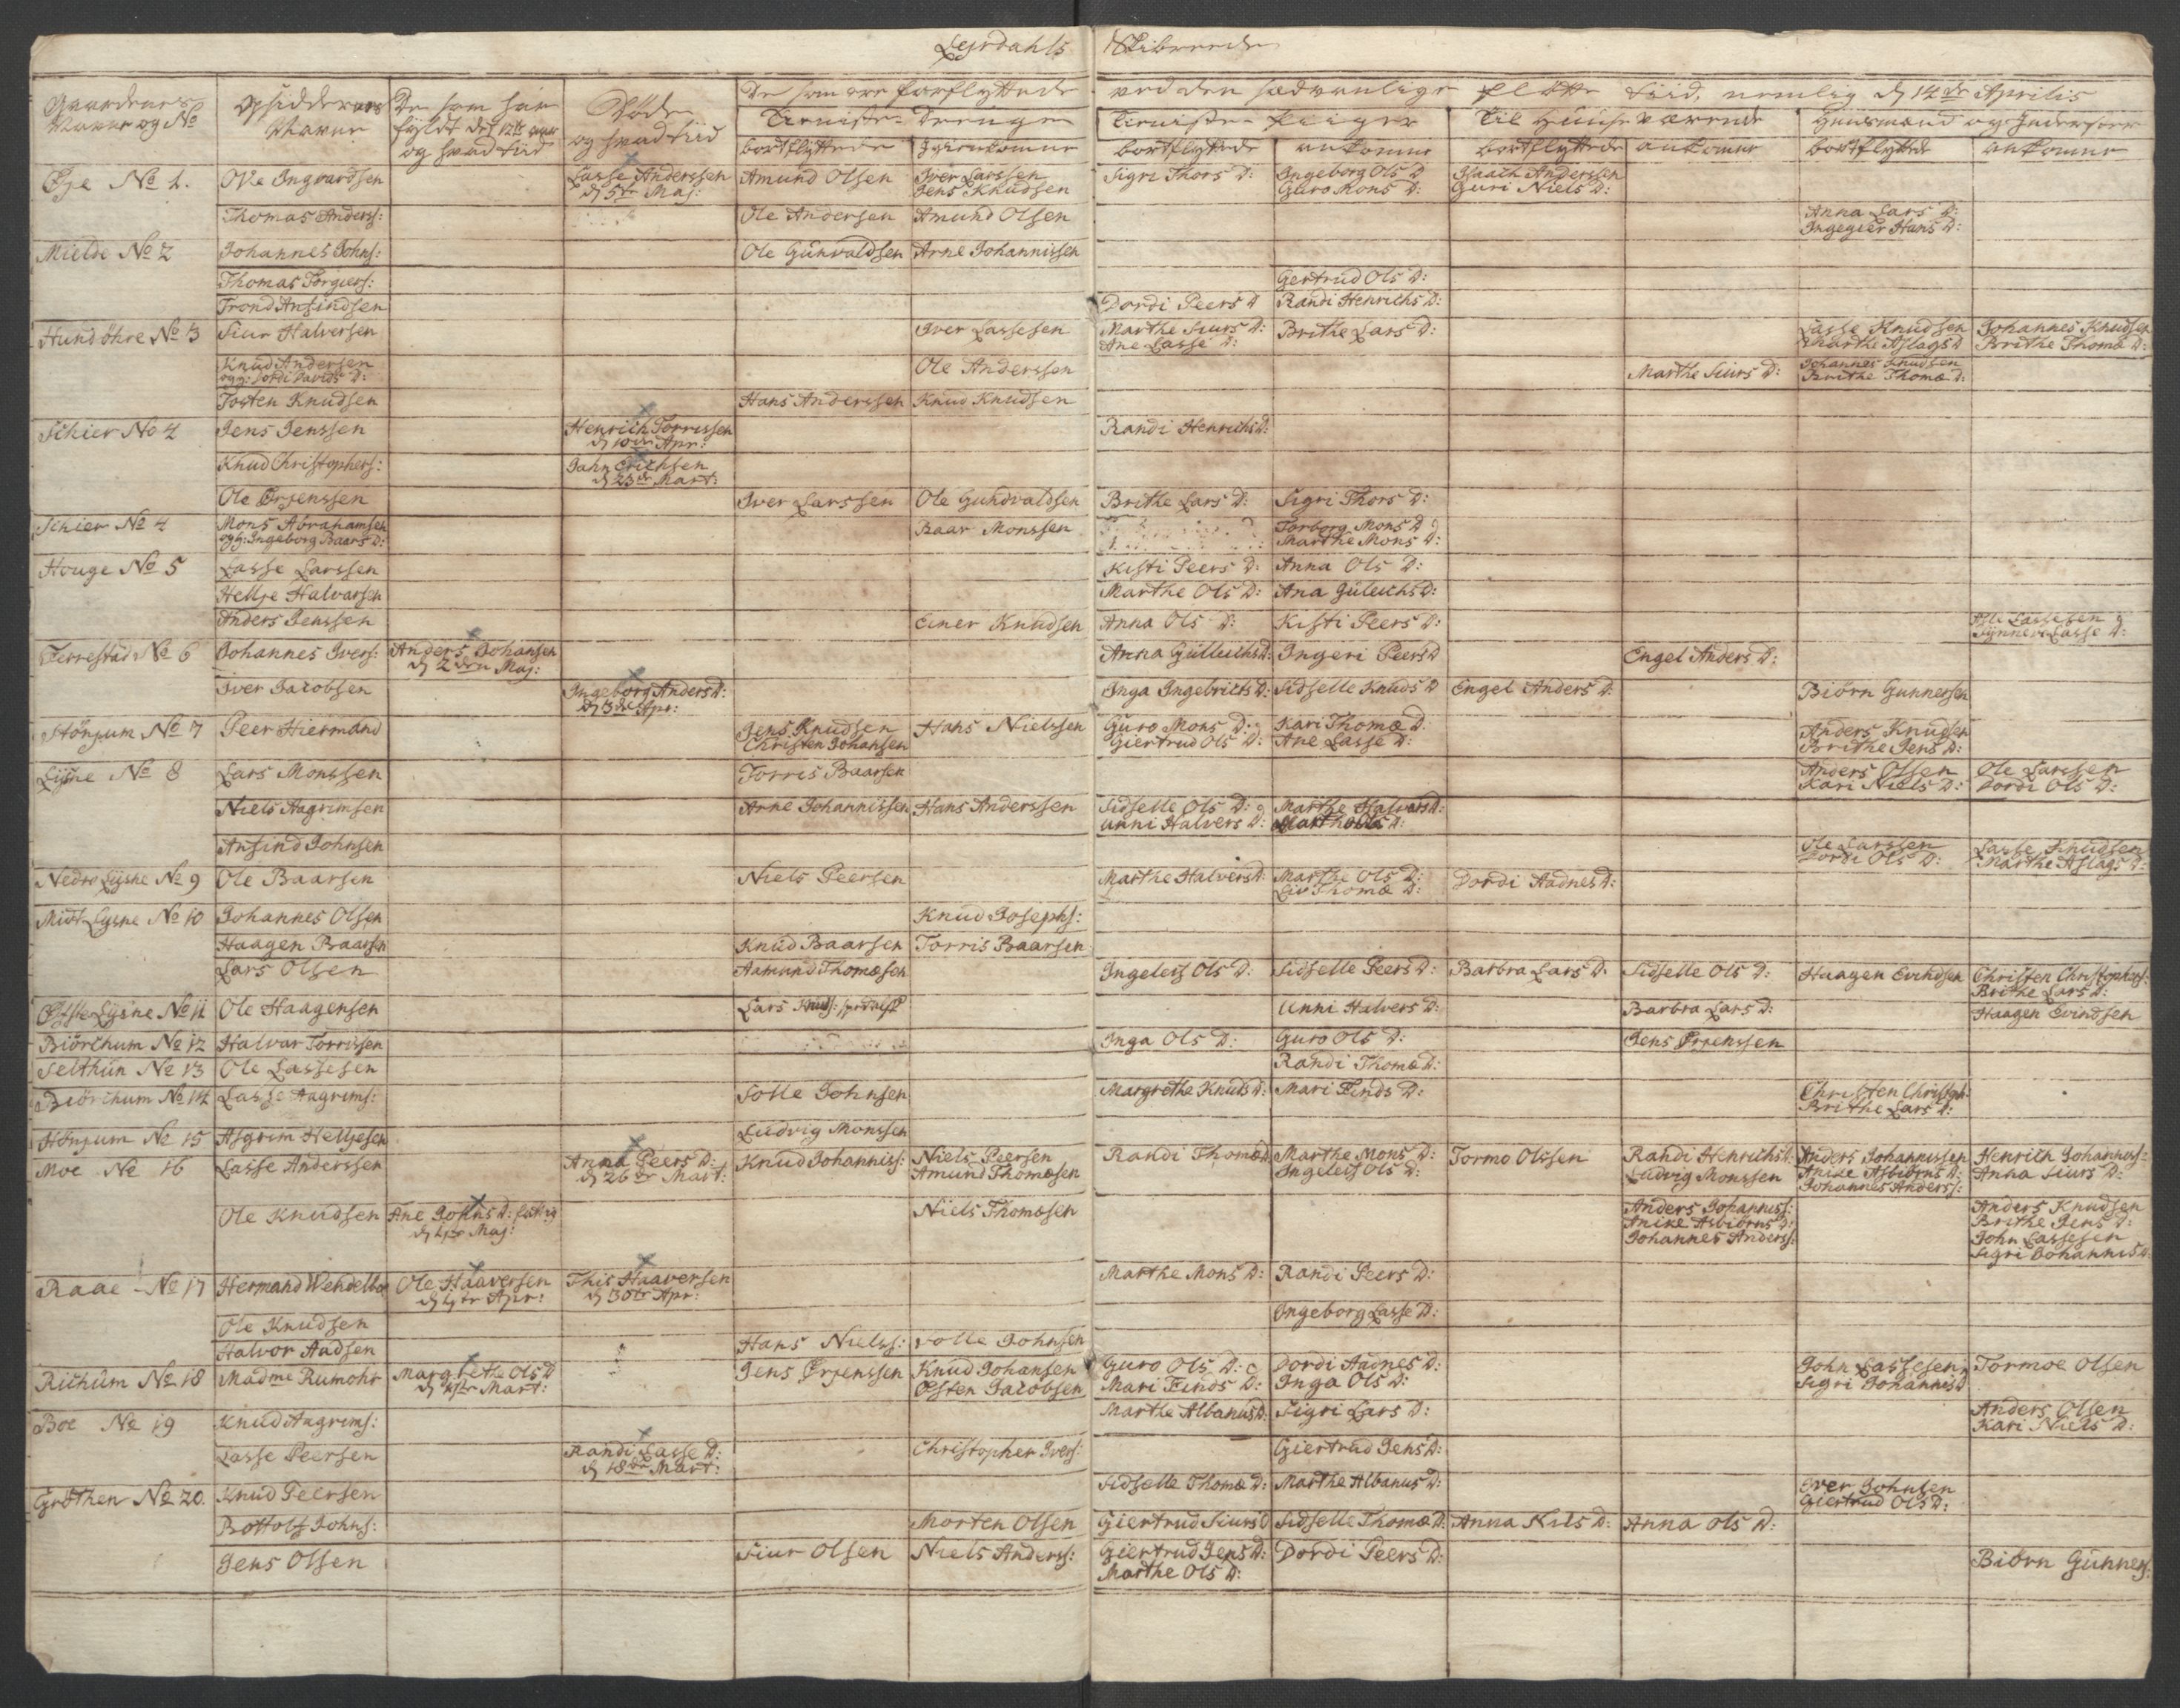 Leirdahls Skibreede
Gaardenes Navne og No
Opsiddernes Navne
De som har fyldt det 12te aar og hvad tiid
Døde og hvad tiid
De som ere forflyttede ved den sædvanlige flötte Tiid, nemlig d 14de Aprilis
Tieniste-Drenge
Tieniste-Piiger
Til Huuse værende
Huusmænd og Inderster
bortflyttede
bortflyttede ankomne bortflyttede ankomne bortflyttede ankomne
Øye No 1. Ole Ingvardsen Lasse Anderssen Amund Olsen Iver Larssen Sigri Thors D: Ingeborg Ols D Isaach Anderssen
d 5te Maj: Jens Knudsen Guro Mons D: Guri Niels D:
Thomas Anderss: Ole Andersen Amund Olsen Anna Lars D:
Ingegier Hans D:
Mielde No 2 Johannes Johns: Ole Gunvaldsen Arne Johannissen
Thomas Torgiers: Gertrud Ols D:
Trond Ansindsen Dordi Peers D Randi Henrichs D:
Hundøhre No 3 Siur Halversen Iver Lassesen Marthe Siurs D: Brithe Lars D: Lasse Knudsen Johannes Knudsen
Ane Lasse D: Marthe Aslags D Brithe Thomæ D:
Knud Andersen Ole Anderssen Marthe Siurs D: Johannes Knudsen
og g: Jordi Davids D: Brithe Thomæ D:
Tosten Knudsen Hans Anderssen Knud Knudsen
Schier No 4 Jens Jenssen Henrich Torrissen Randi Henrichs D:
d 10de Apr:
Knud Christophers: Jahn Erichsen
d 23de Mart:
Ole Ørjenssen Iver Larssen Ole Gundvaldsen Brithe Lars D: Sigri Thors D:
Schier No 4 Mons Abrahamsen Baar Monssen Torborg Mons D
og g: Ingeborg Baars D: Marthe Mons D:
Houge No 5 Lasse Larssen Kisti Peers D: Anna Ols D:
Hellje Halvarsen Marthe Ols D: Ana Gulleichs D:
Anders Jenssen Einer Knudsen Anna Ols D: Kisti Peers D: Olle Lassesen
Synneve Lasse D:
Ferrestad No 6 Johannes Ivers: Anders Johansen Anna Gulleichs D: Ingeri Peers D Engel Anders D:
d 2den Maj:
Iver Jacobsen Ingeborg Anders D: Inga Ingebricts D: Sidselle Knuds D Engel Anders D: Biörn Gunnersen
d 3de Apr:
Stönjum No 7 Peer Hiermand Jens Knudsen Hans Nielssen Guro Mons D: Kari Thomæ D: Anders Knudsen
Christen Johansen Giertrud Ols D: Ane Lasse D: Brithe Jens D:
Lysne No 8 Lars Monssen Torris Baarsen Anders Olsen Ole Larssen
Kari Niels D: Dordi Ols D:
Niels Aagrimsen Arne Johannissen Hans Anderssen Sidselle Ols D: Marthe Halvers D:
Unni Halvers D: Marthe Ols D:
Ansind Johnsen Ole Larssen Lasse Knudsen
Dordi Ols D: Marthe Aslags D:
Nedre Lysne No 9 Ole Baarsen Niels Peersen Marthe Halvers D: Marthe Ols D: Dordi Aadnes D:
Liv Thomæ D:
Midt Lysne No 10 Johannes Olsen Knud Josephs:
Haagen Baarsen Knud Baarsen Torris Baarsen
Lars Olsen Aamund Thomæsen Ingeleif Ols D: Sidselle Peers D: Barbra Lars D: Sidselle Ols D: Haagen Evindsen Christen Christophers:
Brithe Lars D:
Øfste Lysne No 11 Ole Haagensen Lars Knuds: Unni Halvers D: Barbra Lars D: Haagen Evindsen
Biörchum No 12 Halvar Torrissen Inga Ols D: Guro Ols D: Jens Ørjenssen
Selthun No 13 Ole Lassesen Randi Thomæ D:
Biörchum No 14 Lasse Aagrims: Solle Johnsen Margrethe Knuds D: Mari Finds D: Christen Christoph:
Brithe Lars D:
Hönjum No 15 Asgrim Helljesen Ludvig Monssen
Moe No 16 Lasse Anderssen Anna Peers D: Knud Johanniss: Niels Peersen Randi Thomæ D: Marthe Mons D: Tormo Olssen Randi Henrichs D: Anders Johannissen Henrich Johannes:
d 26de Mart: Amund Thomæsen Ingeleif Ols D: Ludvig Monssen Anike Asbiörns D: Anna Siurs D:
Johannes Anderss:
Ole Knudsen Ane Johns D: Niels Thomæsen Anders Johanniss: Anders Knudsen
d 4de Maj: Anike Asbiörns D: Brithe Jens D:
Johannes Anderss: John Lassesen
Sigri Johannis D
Raae No 17 Hermand Wendelboe Ole Haaversen This Haaversen Marthe Mons D: Randi Peers D:
d 4de Apr: d 30te Apr:
Ole Knudsen Ingeborg Lasse D:
Halvor Aadsen Hans Nielss: Solle Johnsen
Richum No 18 Madme Rumohr Margrethe Ols D Jens Ørjenssen Knud Johansen Guro Ols D: Dordi Aadnes D: John Lassesen Tormoe Olsen
Mart: Østen Jacobsen Mari Finds D: Inga Ols D: Sigri Johannis D
Boe No 19 Knud Aagrims: Marthe Albanus D: Sigri Lars D: Anders Olsen
Kari Niels D:
Lasse Peersen Randi Lasse D: Christopher Ivers: Giertrud Jens D:
d 18de Mart:
Gröthen No 20. Knud Peersen Sidselle Thomæ D: Marthe Albanus D: Iver Johnsen
Giertrud Ols D:
Bottolf Johns: Morten Olsen Giertrud Siurs D Sidselle Thomæ D: Anna Nils D: Anna Ols D:
Jens Olsen Siur Olsen Niels Anderss: Giertrud Jens D: Dordi Peers D: Biörn Gunners:
Marthe Ols D: